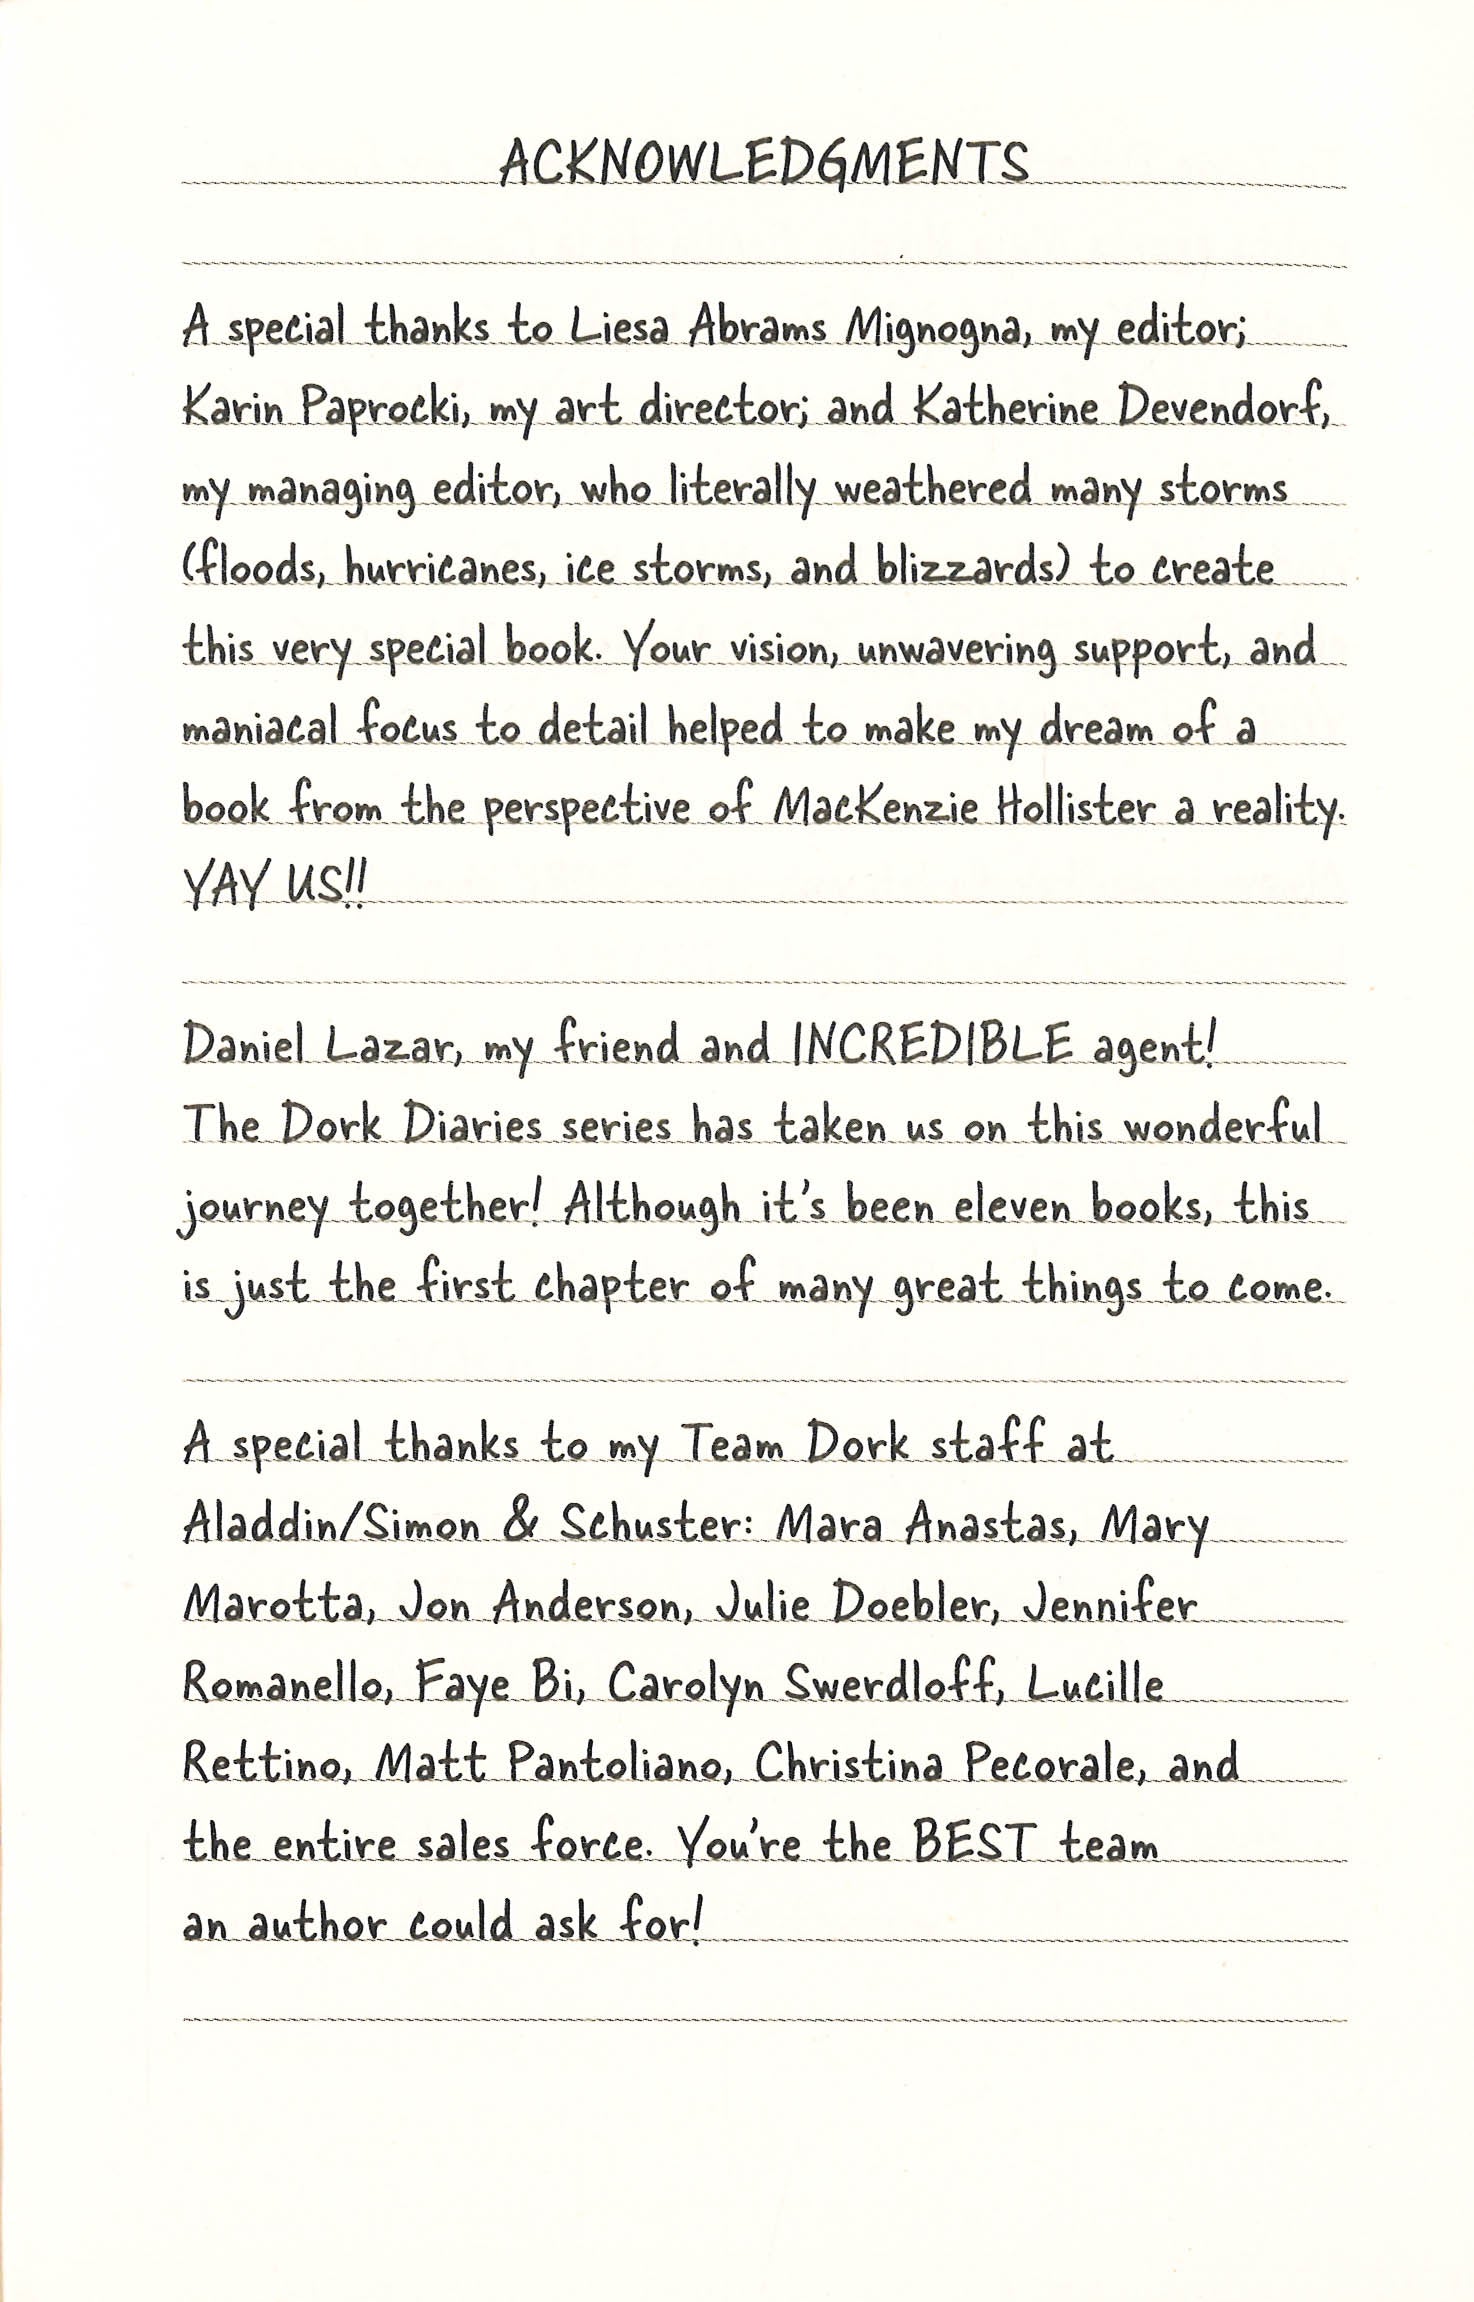 ACKNOWLEDGMENTS
A special thanks to Liesa Abrams Mignogna, my editor;
Karin Paprocki, my art director; and Katherine Devendorf,
my managing editor, who literally weathered many storms
(floods, hurricanes, ice storms, and blizzards) to create
this very special book. Your vision, unwavering support, and
maniacal focus to detail helped to make my dream of a
book from the perspective of MacKenzie Hollister a reality.
YAY US!!
Daniel Lazar, my friend and INCREDIBLE agent!
The Dork Diaries series has taken us on this wonderful
journey together! Although it's been eleven books, this
is just the first chapter of many great things to come.
A special thanks to my Team Dork staff at
Aladdin/Simon & Schuster: Mara Anastas, Mary
Marotta, Jon Anderson, Julie Doebler, Jennifer
Romanello, Faye Bi, Carolyn Swerdloff, Lucille
Rettino, Matt Pantoliano, Christina Pecorale, and
the entire sales force. You're the BEST team
an author could ask for!